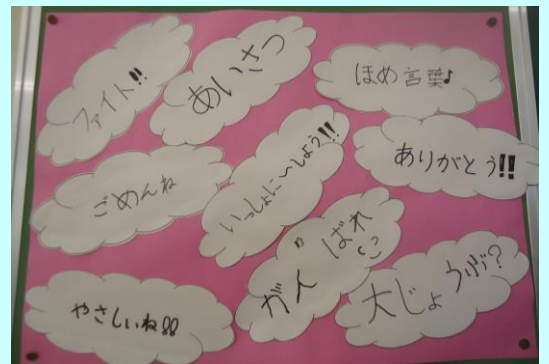 ファイト!!
あいさつ
ほめ言葉♪
ごめんね
いっしょに〜しよう!!
ありがとう!!
やさしいね!!
ガンばれ
大じょうぶ?